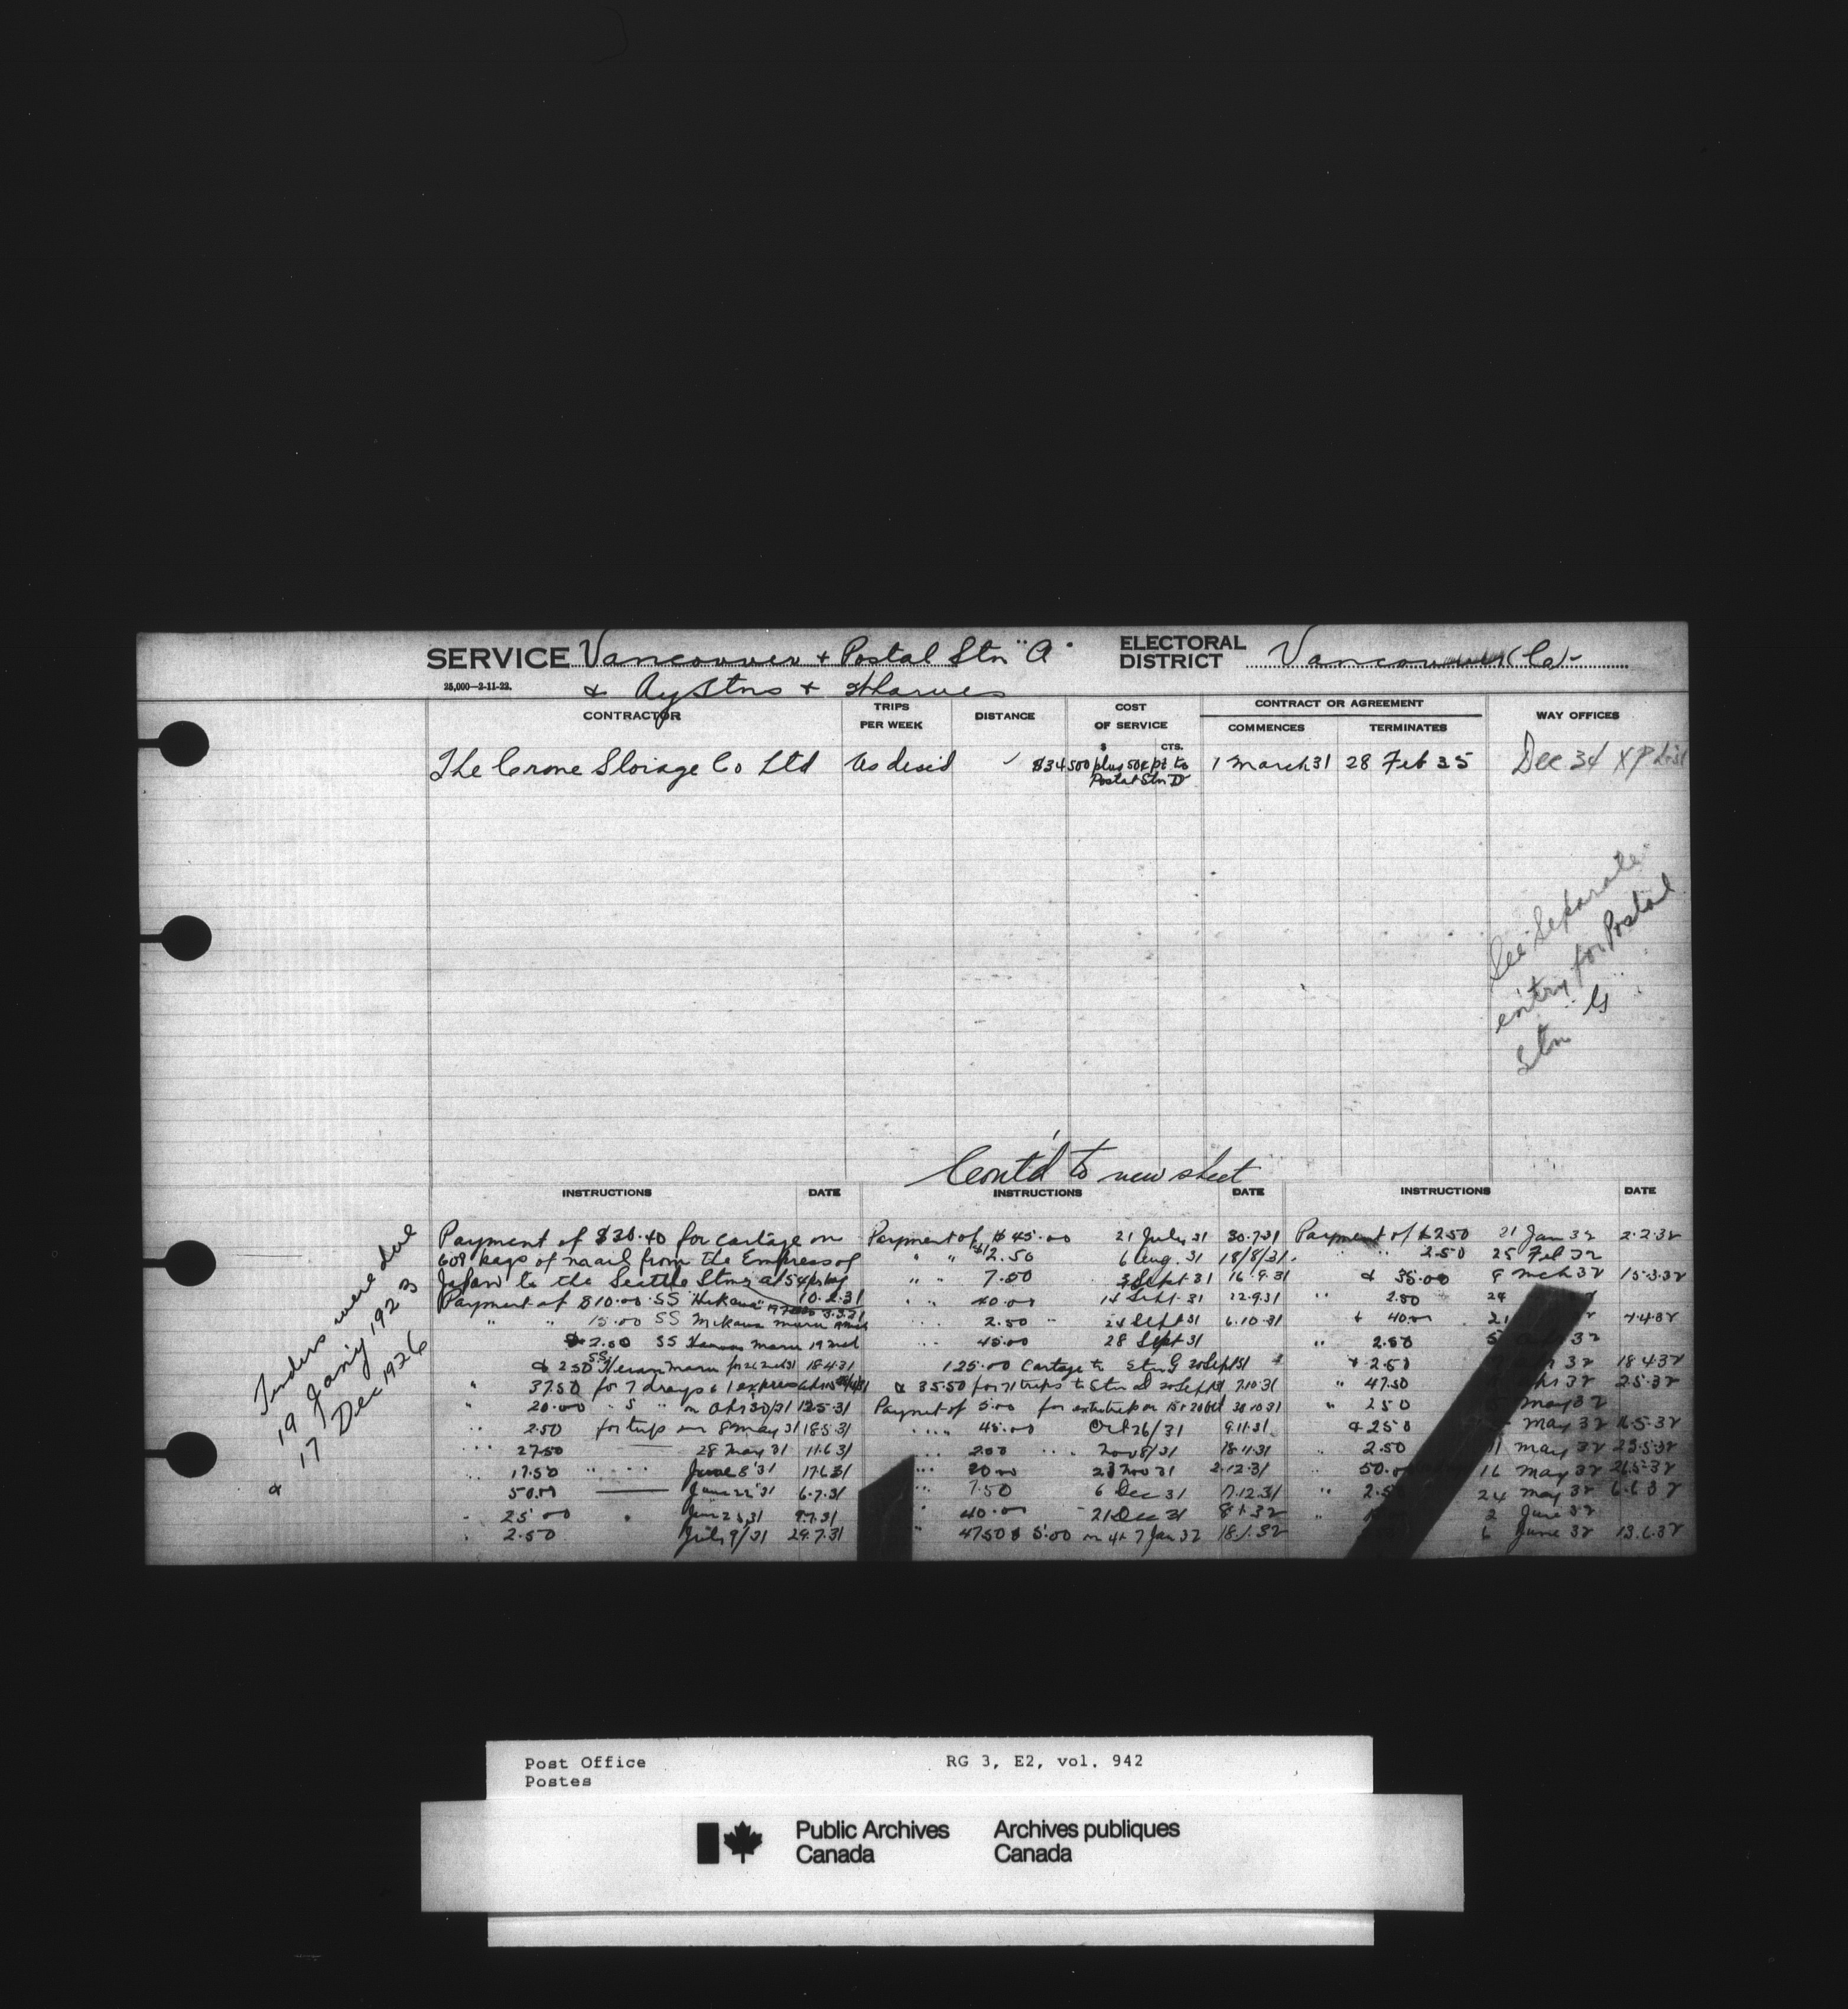 SERVICE Vancouver + Postal Stn "A"
& Ry Stns + Wharves
ELECTORAL DISTRICT Vancouver
25,000—2-11-22.
CONTRACTOR
TRIPS PER WEEK
DISTANCE
COST OF SERVICE
$ CTS.
CONTRACT OR AGREEMENT
COMMENCES
TERMINATES
WAY OFFICES
The Crone Storage Co Ltd
As desired
$34500 plus 50c pt to
Postal Stn D
1 March 31
28 Feb 35
Dec 34 XP List
See Separate
entry for Postal
Stn G
Cont'd to new sheet
Tenders were due
19 Jany 1923
& 17 Dec 1926
INSTRUCTIONS DATE
Payment of $30.40 for cartage on
608 bags of mail from the Empress of
Japan to the Seattle Stmr at 5¢ pr bag 10.2.31
Payment of $10.00 SS "Hikawa" 3.3.31
" " 15.00 SS Maru
& 2.50 SS Maru 19 Mch
& 2.50 SS Heian Maru for 26 Mch 31 18.4.31
" 37.50 for 7 drays & 1 express
" 20.00 " 5 " on Apr 30/31 12.5.31
2.50 for trip on 8 May 31 18.5.31
27.50 28 May 31 11.6.31
17.50 June 8 '31 17.6.31
50.00 June 22 '31 6.7.31
25.00 June 25 31 9.7.31
2.50 July 9/31 29.7.31
INSTRUCTIONS DATE
Payment of $45.00 21 July 31 30.7.31
" " $12.50 6 Aug. 31 18/8/31
" " 7.50 3 Sept 31 16.9.31
" 40.00 14 Sept. 31 22.9.31
2.50 24 Sept 31 6.10.31
45.00 28 Sept 31
125.00 Cartage to Stn G 20 Sept 31
& 35.50 for 71 trips to Stn D 20 Sept 31 7.10.31
Paymet of 5.00 for extra trip on 15 & 20 Oct 30.10.31
45.00 Oct 26/31 9.11.31
2.00 Nov 8/31 18.11.31
20.00 23 Nov 31 2.12.31
7.50 6 Dec 31 17.12.31
40.00 21 Dec 31 8.1.32
47.50 & 5.00 on 4 & 7 Jan 32 18.1.32
INSTRUCTIONS DATE
Payment of $2.50 21 Jan 32 2.2.32
" 2.50 25 Feb 32
& 35.00 9 Mch 32 15.3.32
" 2.50 24
& 40.00 21 7.4.32
" 2.50 5 32
& 2.50 32 18.4.32
" 47.50 32 2.5.32
" 2.50 May 32
& 2.50 May 32 16.5.32
" 2.50 11 May 32 23.5.32
" 50.00 16 May 32 26.5.32
" 2.5 24 May 32 6.6.32
" 2 June 32
6 June 32 13.6.32
Post Office
Postes
RG 3, E2, vol. 942
Public Archives
Canada
Archives publiques
Canada